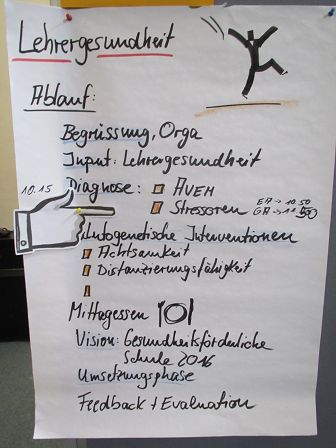 Lehrergesundheit
Ablauf:
Begrüssung, Orga
Input: Lehrergesundheit
10.15 Diagnose: AVEM
Stressoren EA → 10.50
GA →
Autogenetische Interventionen
Achtsamkeit
Distanzierungsfähigkeit
Mittagessen
Vision: Gesundheitsförderliche
Schule 2016
Umsetzungsphase
Feedback + Evaluation